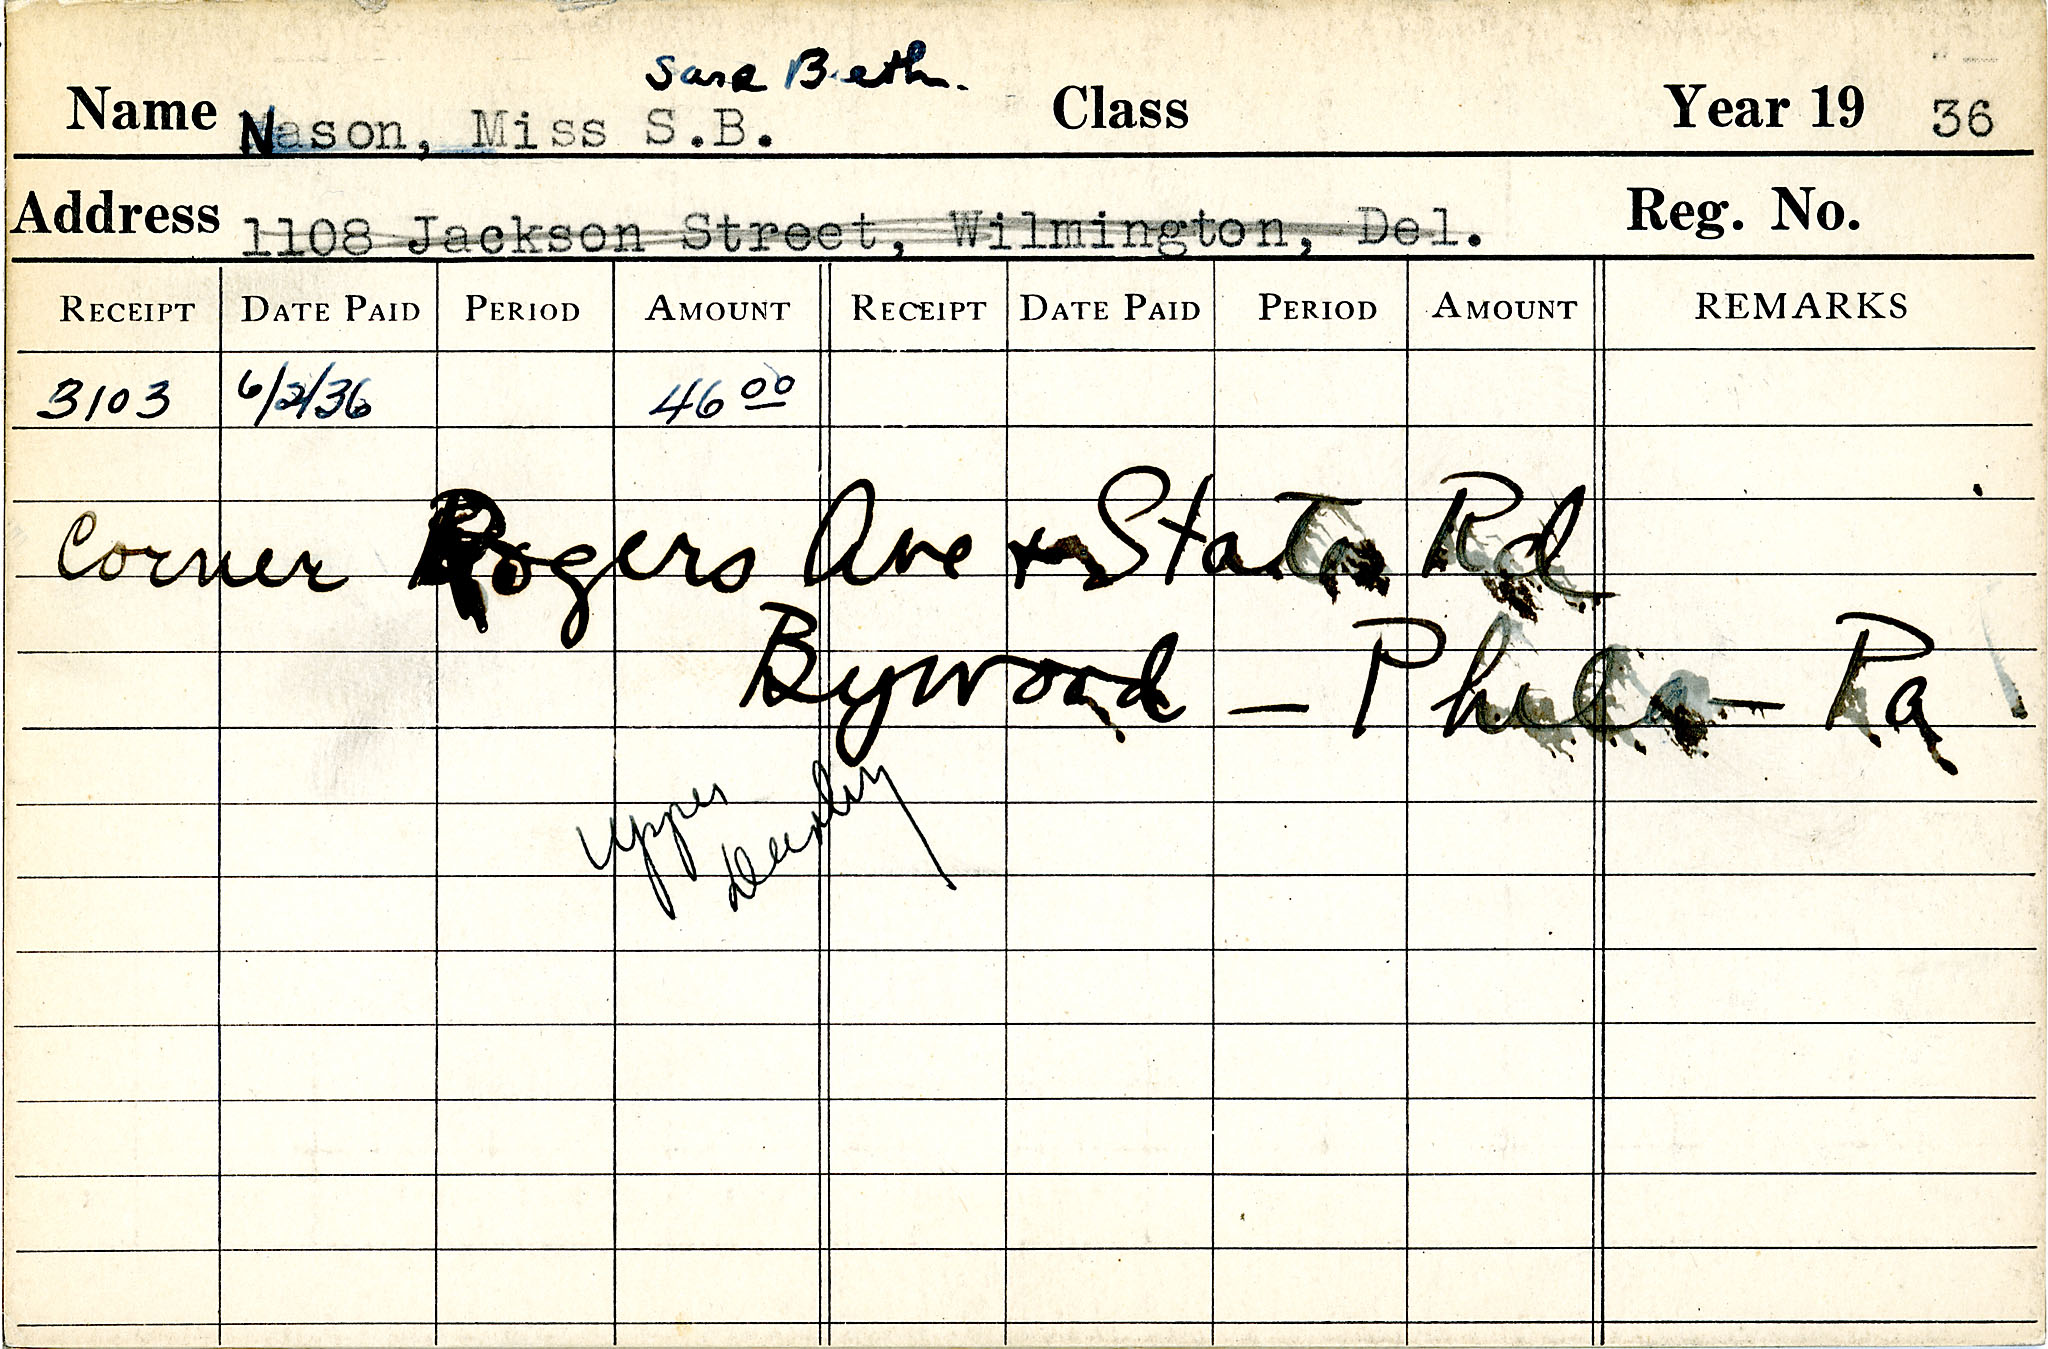 Sara Beth.
Name Nason, Miss S.B. Class Year 19 36
Address 1108 Jackson Street, Wilmington, Del. Reg. No.
RECEIPT DATE PAID PERIOD AMOUNT RECEIPT DATE PAID PERIOD AMOUNT REMARKS
3103 6/2/36 46 00
Corner Rogers Ave + State Rd
Bywood - Phila - Pa
Upper
Darby